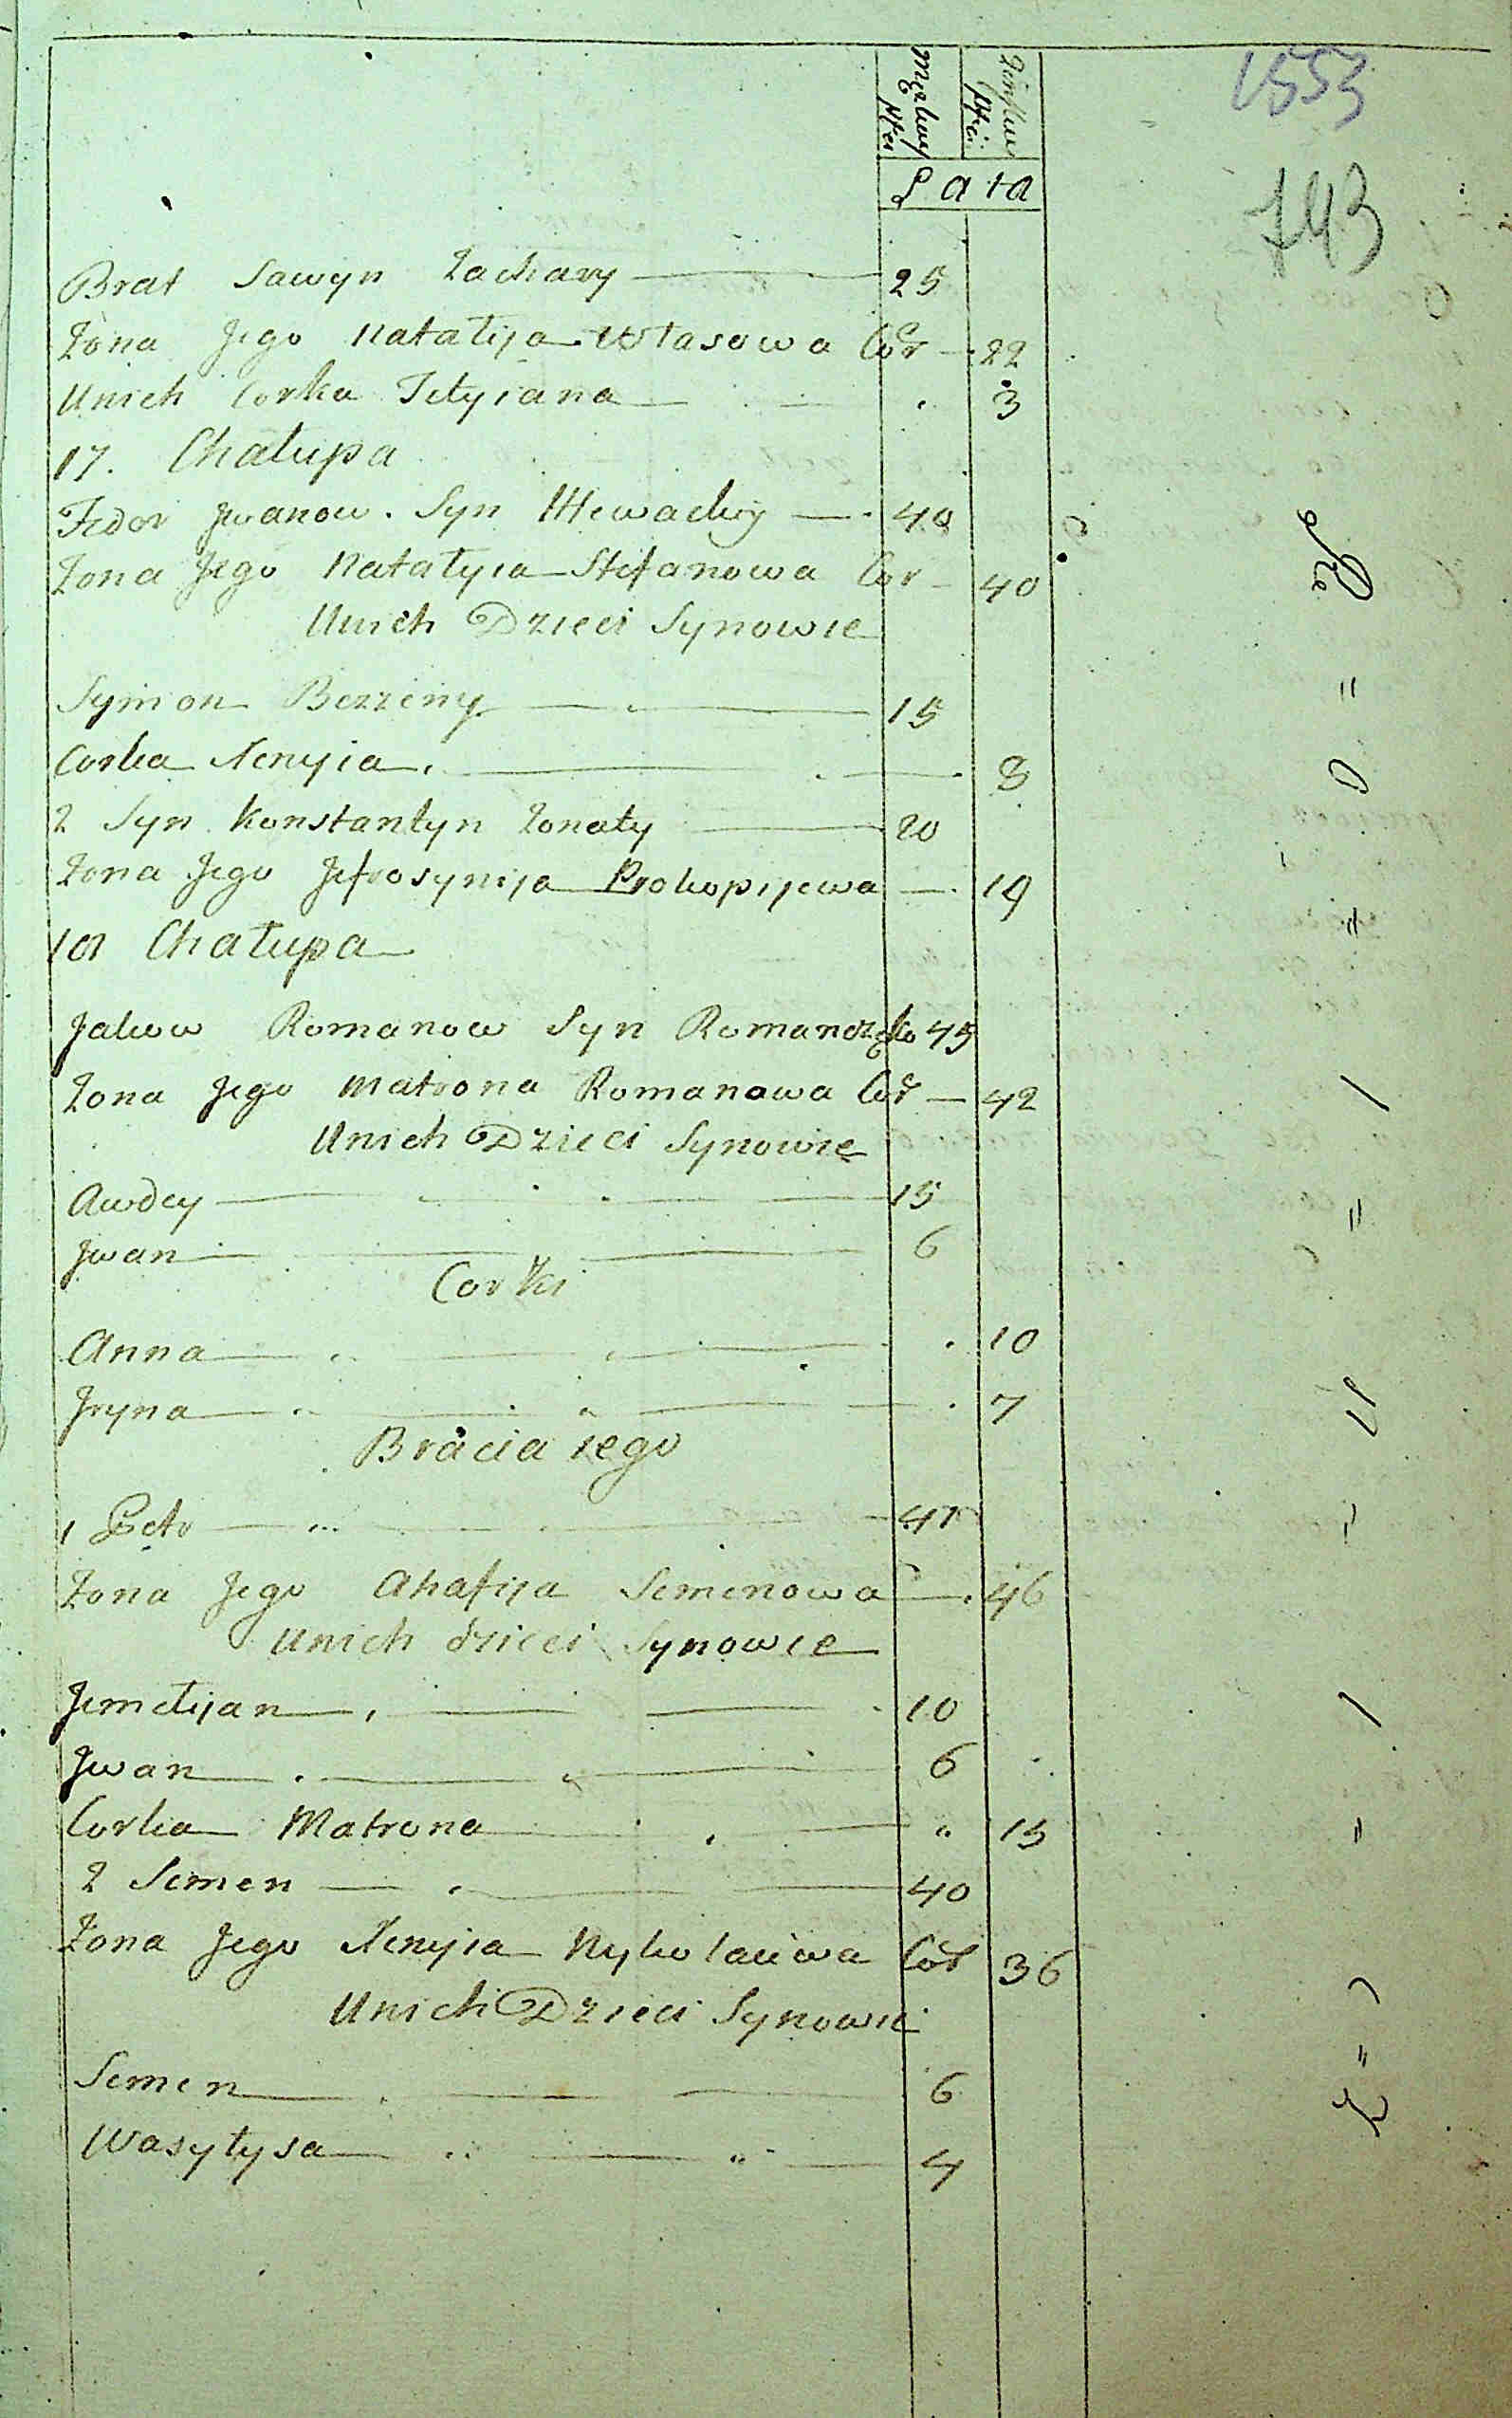 1553
743
Męzkiey płci
Żeńskiey płci
Lata
Brat Sawyn Zachary 25
Żona Jego Natalija Własowa Cór 22
Unich Corka Tetyiana 3
17. Chałupa
Fedor Jwanow. Syn 40
Żona Jego Natałyia Stefanowa Cor 40
Unich Dzieci Synowie
Symon Bezżeny 15
Corka Xenyia 8
2 Syn Konstantyn Żonaty 20
Żona Jego Jefrosynija Prokopijewa 19
18 Chałupa
Jakow Romanow Syn Romanczuk 45
Żona Jego Matrona Romanowa Cór 42
Unich Dzieci Synowie
Awdey 15
Jwan 6
Corki
Anna 10
Jryna 7
Bracia iego
1 Petr 47
Żona Jego Ahafija Semenowa C 46
Unich dzieci Synowie
Jemełijan 10
Jwan 6
Corka Matrona " 15
2 Semen 40
Żona Jego Xenyia Nykołaiewa Cór 36
Unich Dzieci Synowie
Semen 6
Wasyłysa 4